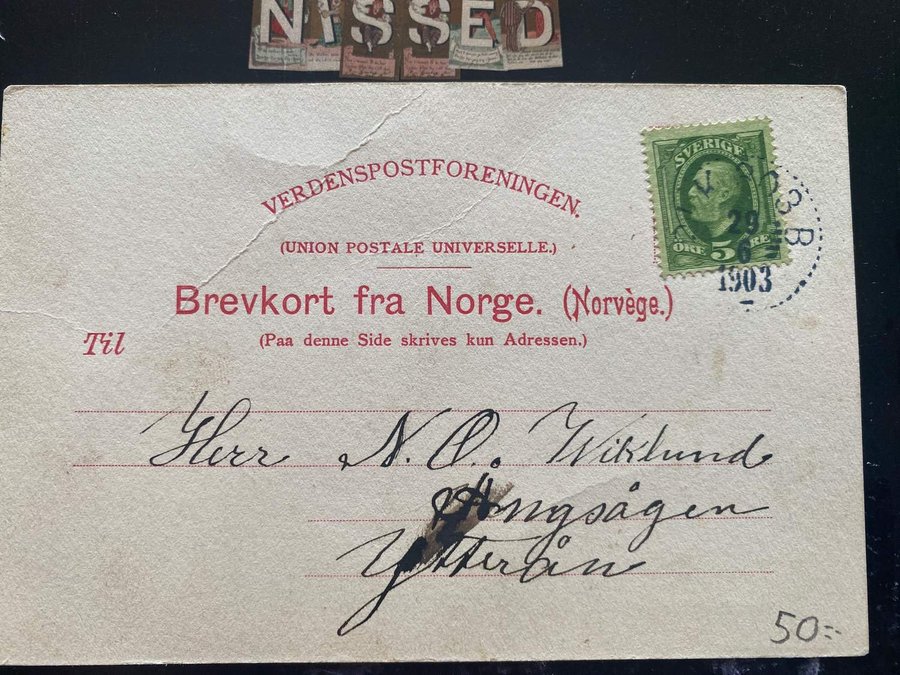 NISSED
VERDENSPOSTFORENINGEN.
(UNION POSTALE UNIVERSELLE.)
Brevkort fra Norge. (Norvège.)
(Paa denne Side skrives kun Adressen.)
Til
SVERIGE
ÖRE 5 ÖRE
29
6
1903
Herr N. O. Wiklund
Ängsågen
Ytterån
50:-